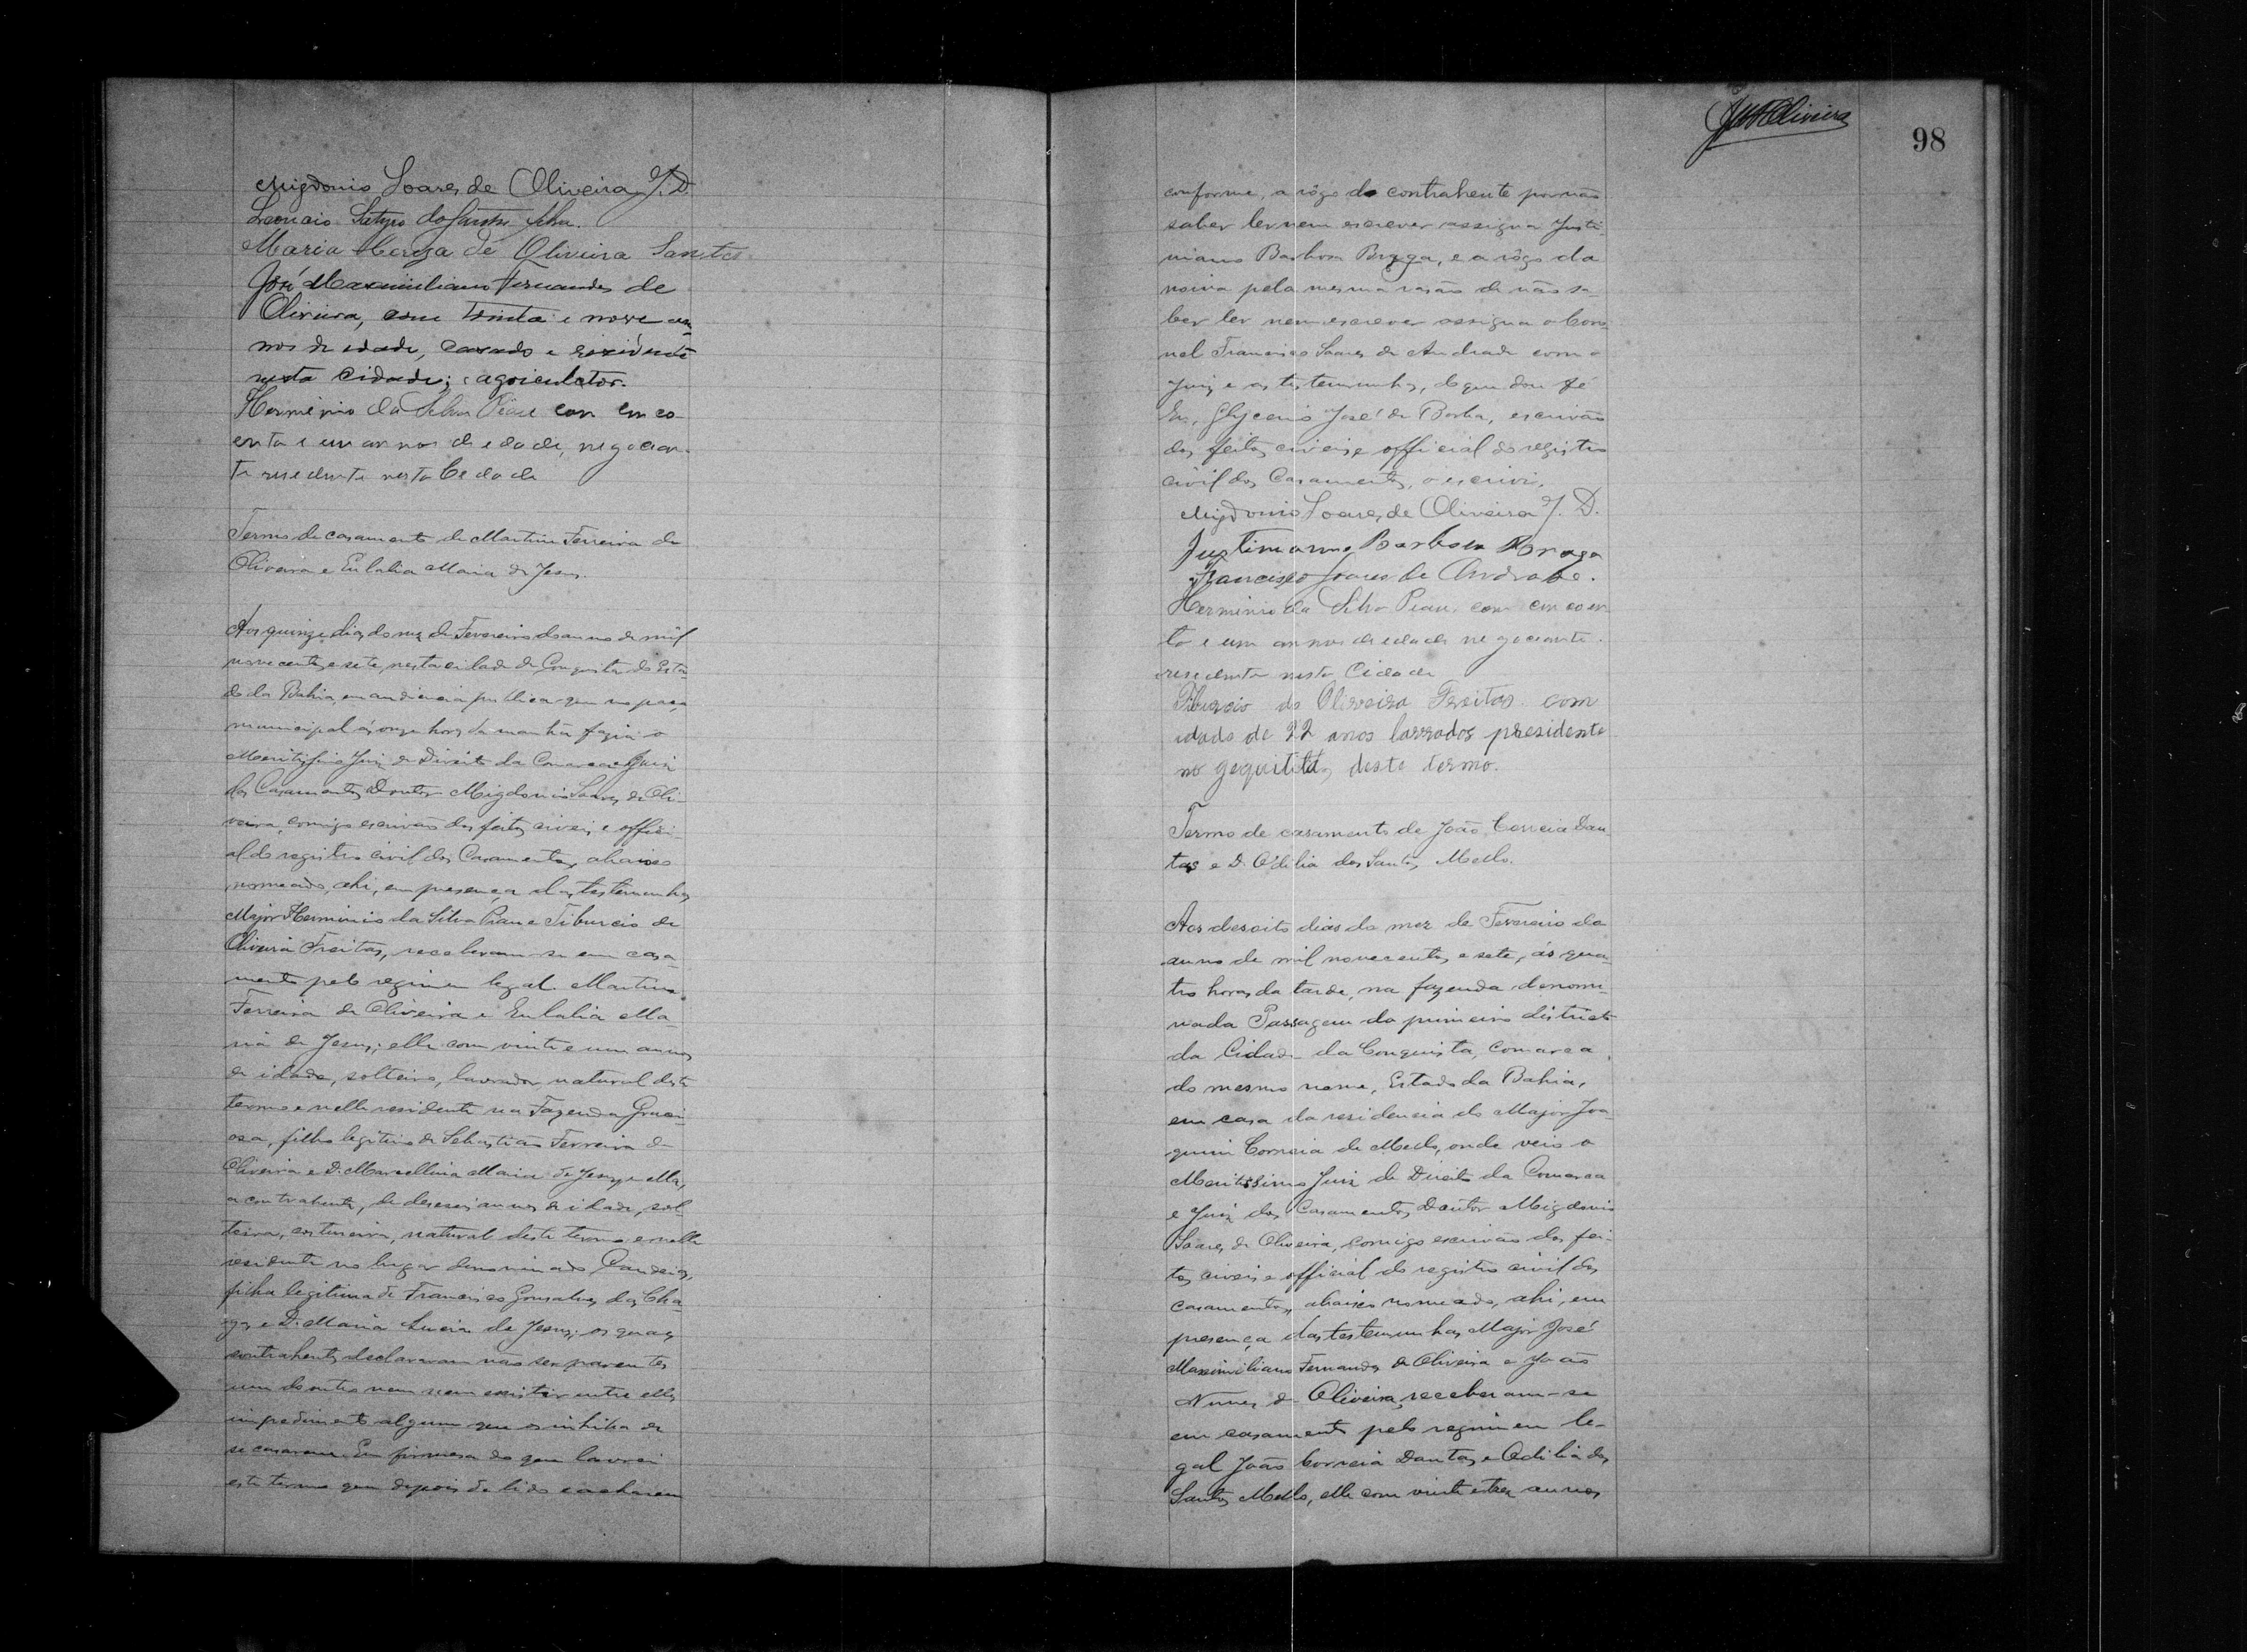 Migdonio Soares de Oliveira J. D.
Leoncio Satyro dos Santos Silva.
Maria Thereza de Oliveira Santos
José Maximiliano Fernandes de
Oliveira, com trinta e nove an-
nos de idade, casado e residente
nesta Cidade; agricultor.
Herminio da Silva Piau com cin co-
enta e um an nos de edade, negocian-
te resedente nesta Cedade
Termo de casamento de Martins Ferreira de
Oliveira e Eulalia Maria de Jesus.
Aos quinze dias do mez de Fevereiro do anno de mil
novecentos e sete, nesta cidade de Conquista do Esta-
do da Bahia, em audiencia publica que no paço
municipal ás onze horas da manhã fazia o
Meritissimo Juiz de Direito da Comarca e Juiz
dos Casamentos Doutor Migdonio Soares de Oli-
veira, comigo escrivão dos feitos civeis e offici-
al do registro civil dos Casamentos, abaixo
nomeado, ahi, em presença das testemunhas
Major Herminio da Silva Piau e Tiburcio de
Oliveira Freitas, receberam-se em casa-
mento pelo regimen legal Martins
Ferreira de Oliveira e Eulalia Ma-
ria de Jesus; elle com vinte e um annos
de idade, solteiro, lavrador natural deste
termo e nelle residente na Fazenda Graci-
osa, filho legitimo de Sebastião Ferreira de
Oliveira e D. Marcellina Maria de Jesus, e ella,
a contrahente, de deseseis annos de idade, sol-
teira, costureira, natural deste termo e nelle
residente no lugar denominado
filha legitima de Francisco Gonsalves das Cha-
gas e D. Maria Lucia de Jesus; os quaes
contrahentes declararam não ser parentes
um do outro nem nem existir entre elles
impedimento algum que os inhiba de
se casarem. Em firmesa do que lavrei
este termo que depois de lido e acharem
JMFOliveira
98
conforme, a rôgo do contrahente por não
saber ler nem escrever assigna Justi-
niano Barbosa Braga, e a rôgo da
noiva pela mesma rasão de não sa-
ber ler nem escrever assigna o Coro-
nel Francisco Soares de Andrade com o
Juiz e as testemunhas, do que dou fé
Eu, Glycerio José de Borba, escrivão
dos feitos civeis e official do registro
civil dos Casamentos, o escrivi.
Migdonio Soares de Oliveira J. D.
Justinianno Barbosa Braga
Francisco Soares de Andrade.
Herminio da Silva Piau. com cin coen
ta e um an nos de edade ne gociante.
resedente nesta Cidade
Tiburcio de Oliveira Freitas com
idade de 22 anos lavrados presidente
no deste termo.
Termo de casamento de João Correia Dan-
tas e D. Odilia dos Santos Mello.
Aos desoito dias do mez de Fevereiro do
anno de mil novecentos e sete, ás qua-
tro horas da tarde, na fazenda denomi-
nada Passagem do primeiro districto
da Cidade da Conquista, comarca
do mesmo nome, Estado da Bahia,
em casa da residencia do Major Joa-
quim Correia de Mello, onde veio o
Meritissimo Juiz de Direito da Comarca
e Juiz dos Casamentos Doutor Migdonio
Soares de Oliveira, comigo escrivão dos fei-
tos civeis e official do registro civil dos
casamentos, abaixo nomeado, ahi, em
presença das testemunhas Major José
Maximiliano Fernandes de Oliveira e João
Nunes de Oliveira, receberam-se
em casamento pelo regimen le-
gal João Correia Dantas e Odilia dos
Santos Mello, elle com vinte e tres annos